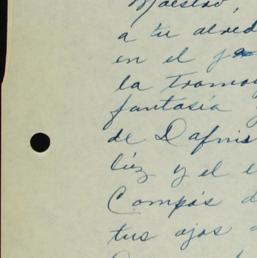 Maestro,
a tu alred
en el ja
la tramoy
fantasía
de Dafnis
luz y el e
Compás d
tus ojos a